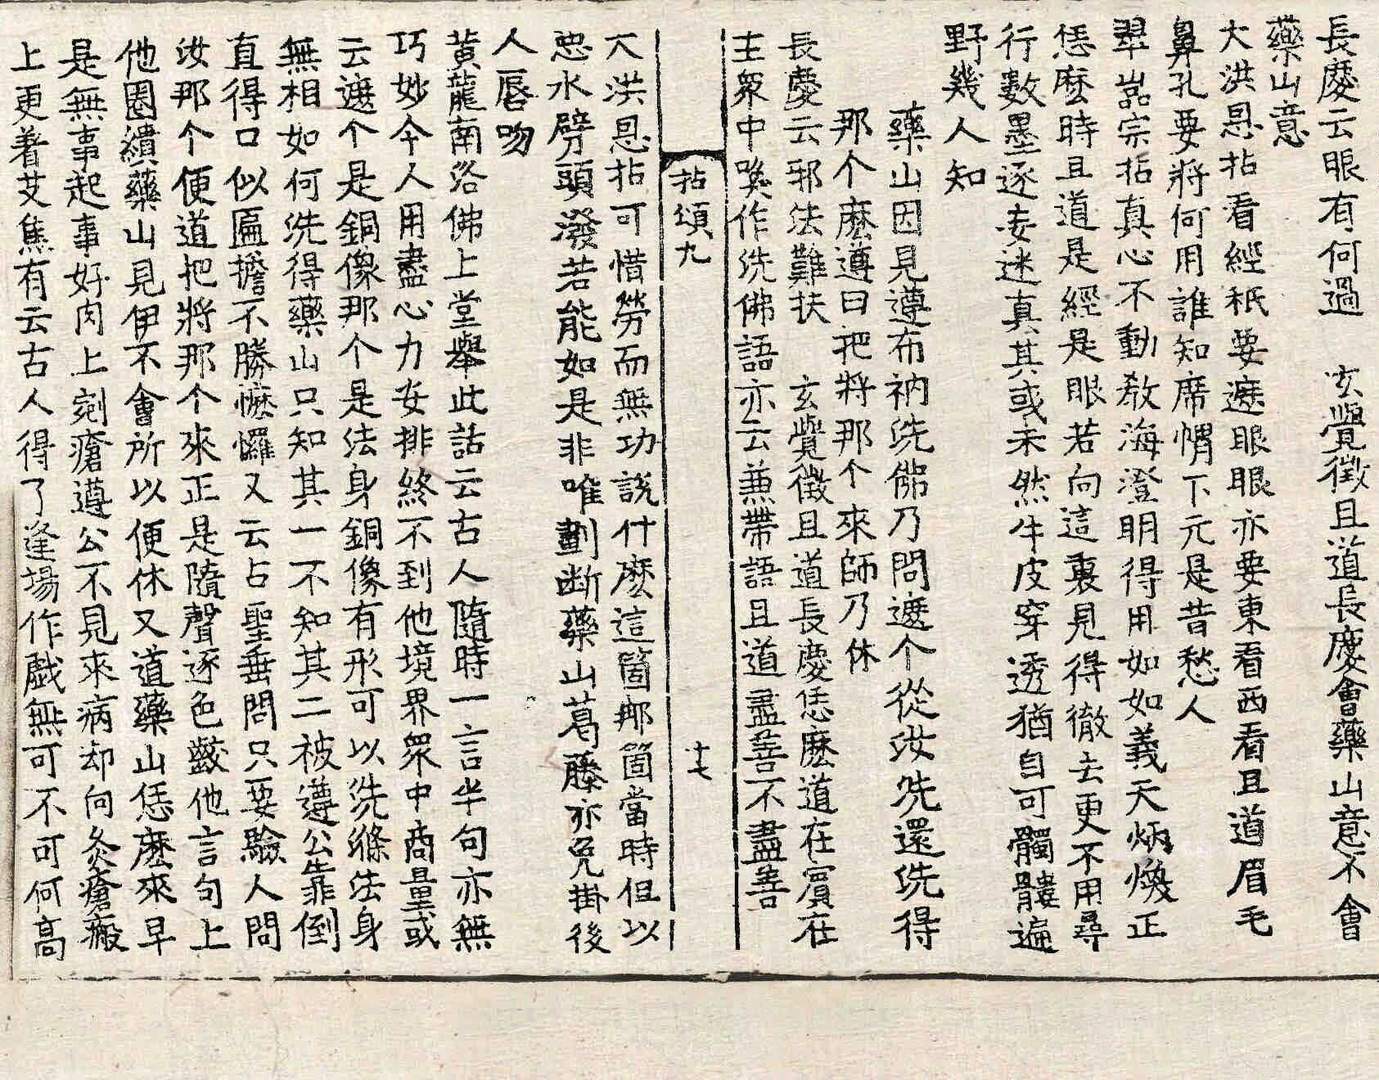 長慶云眼有何過　玄覺徵且道長慶會藥山意不會
藥山意
大洪恩拈看經秖要遮眼眼亦要東看西看且道眉毛
鼻孔要將何用誰知席帽下元是昔愁人
翠嵓宗拈真心不動教海澄明得用如如義天炳煥正
恁麽時且道是經是眼若向這裏見得徹去更不用尋
行數墨逐妄迷真其或未然牛皮穿透猶自可髑髏遍
野幾人知
藥山因見遵布衲洗佛乃問遮个從汝洗還洗得
那个麽遵曰把將那个來師乃休
長慶云邪法難扶　玄覺徵且道長慶恁麽道在賓在
主衆中喚作洗佛語亦云兼帶語且道盡善不盡善
拈頌九　十七
大洪恩拈可惜勞而無功說什麽這箇那箇當時但以
惡水劈頭潑若能如是非唯劃斷藥山葛藤亦免掛後
人唇吻
黃龍南浴佛上堂舉此話云古人隨時一言半句亦無
巧妙今人用盡心力安排終不到他境界衆中商量或
云遮个是銅像那个是法身銅像有形可以洗滌法身
無相如何洗得藥山只知其一不知其二被遵公靠倒
直得口似匾擔不勝懡㦬又云占聖垂問只要驗人問
汝那个便道把將那个來正是隨聲逐色齩他言句上
他圈繢藥山見伊不會所以便休又道藥山恁麽來早
是無事起事好肉上剜瘡遵公不見來病却向灸瘡瘢
上更着艾焦有云古人得了逢場作戱無可不可何高